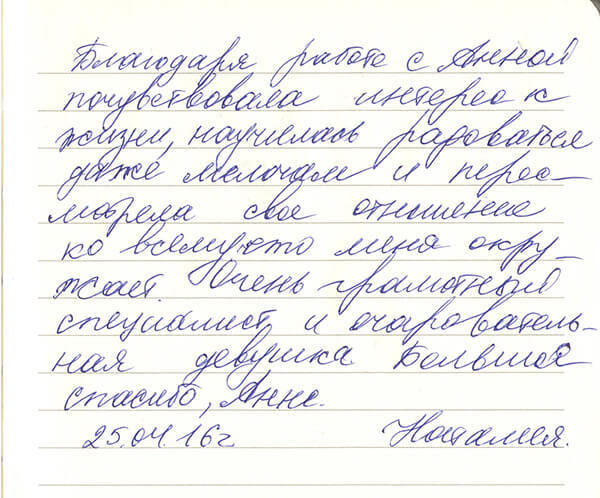 Благодаря работе с Анной
почувствовала интерес к
жизни, научилась радоваться
даже мелочам и перес-
мотрела свое отношение
ко всему, что меня окру-
жает. Очень грамотный
специалист и очарователь-
ная девушка Большое
спасибо, Анне.
25.04.16г. Наталия.